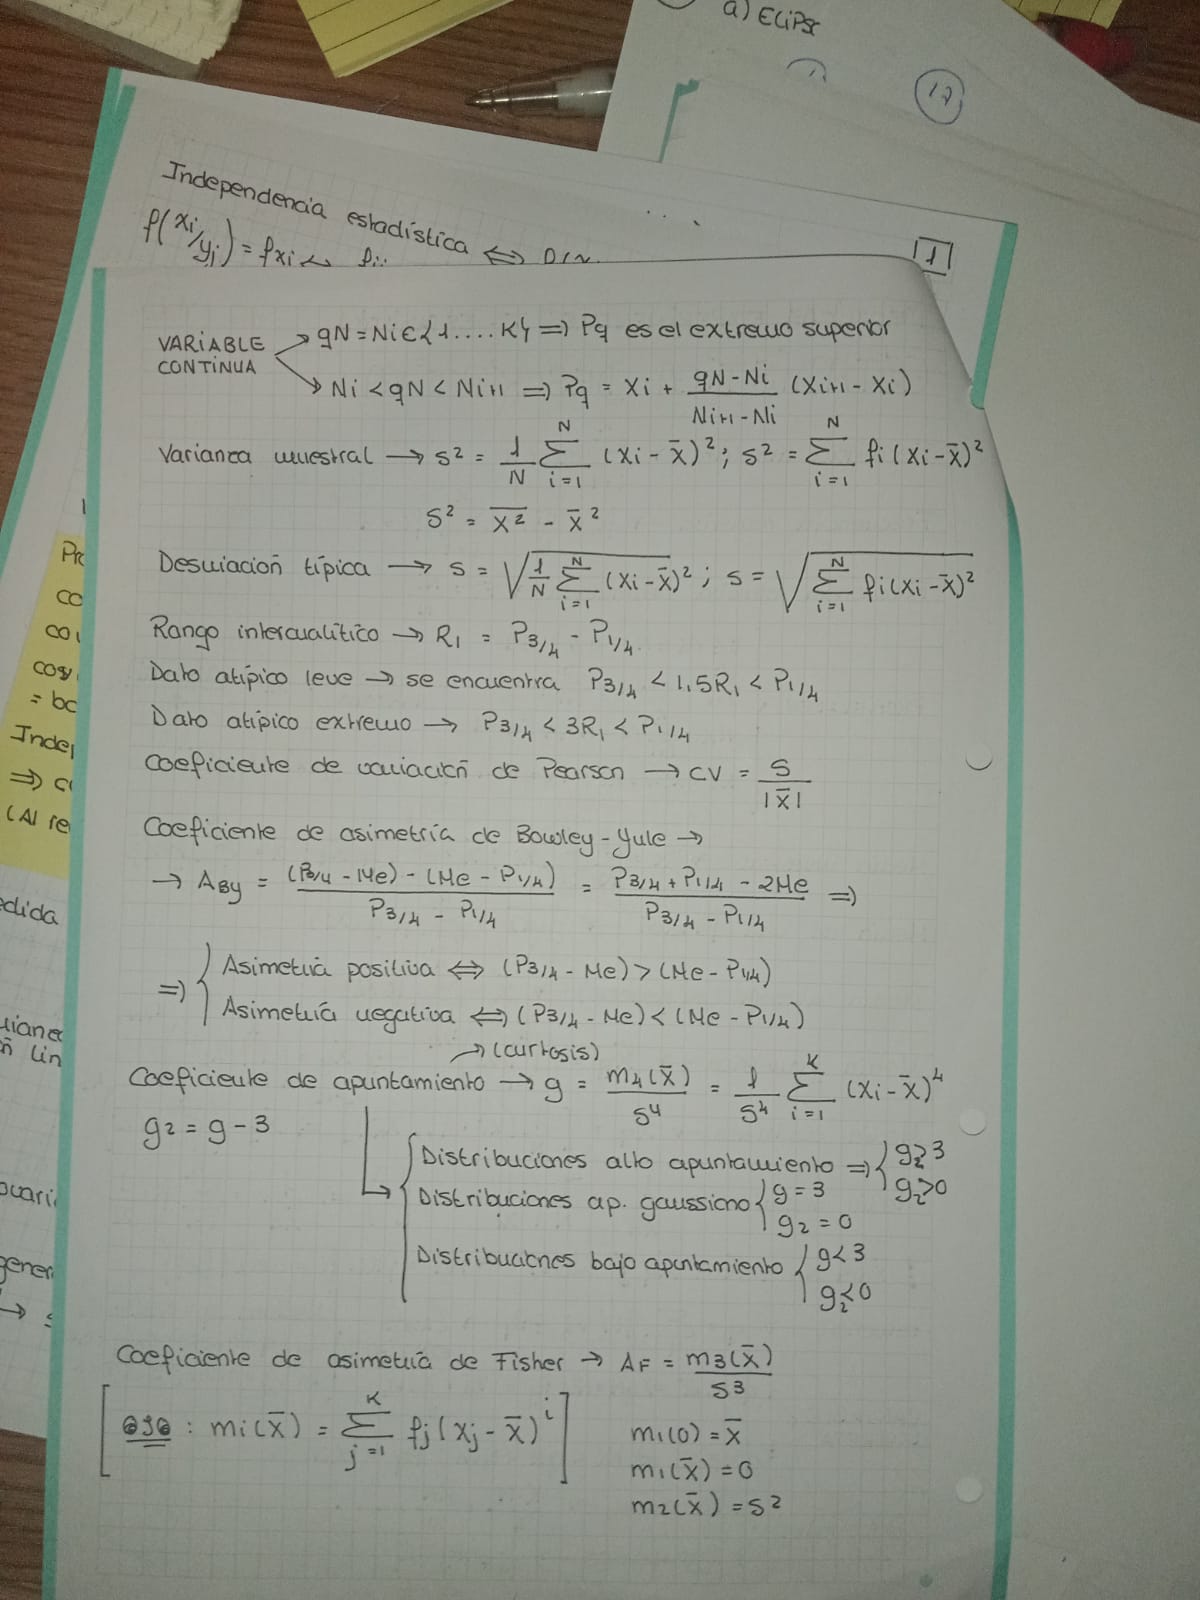 a) ECLiPSE
17
Independencia estadística ⇔
f(xi/yj) = fxi ↔
1
VARIABLE CONTINUA → qN = Ni ∈ {1....K} ⇒ Pq es el extremo superior
→ Ni < qN < Ni+1 ⇒ Pq = xi + (qN - Ni)/(Ni+1 - Ni) (xi+1 - xi)
Varianza muestral → s² = 1/N Σ_{i=1}^{N} (xi - x̄)²; s² = Σ_{i=1}^{N} fi (xi - x̄)²
s² = x̄² - x̄²
Desviación típica → s = √(1/N Σ_{i=1}^{N} (xi - x̄)²); s = √(Σ_{i=1}^{N} fi(xi - x̄)²)
Rango intercualítico → R₁ = P3/4 - P1/4
Dato atípico leve → se encuentra P3/4 < 1,5R₁ < P1/4
Dato atípico extremo → P3/4 < 3R₁ < P1/4
Coeficiente de variación de Pearson → CV = s/|x̄|
Coeficiente de asimetría de Bowley-Yule →
→ ABy = ((P3/4 - Me) - (Me - P1/4))/(P3/4 - P1/4) = (P3/4 + P1/4 - 2Me)/(P3/4 - P1/4) ⇒
⇒ { Asimetría positiva ⇔ (P3/4 - Me) > (Me - P1/4)
Asimetría negativa ⇔ (P3/4 - Me) < (Me - P1/4)
→ (curtosis)
Coeficiente de apuntamiento → g = m4(x̄)/s⁴ = 1/s⁴ Σ_{i=1}^{K} (xi - x̄)⁴
g2 = g - 3
Distribuciones alto apuntamiento ⇒ { g > 3
g2 > 0
Distribuciones ap. gaussiano { g = 3
g2 = 0
Distribuciones bajo apuntamiento { g < 3
g2 < 0
Coeficiente de asimetría de Fisher → AF = m3(x̄)/s³
[ojo : mi(x̄) = Σ_{j=1}^{K} fj (xj - x̄)^i]
m1(0) = x̄
m1(x̄) = 0
m2(x̄) = s²
Inde
⇒
(Al re
edida